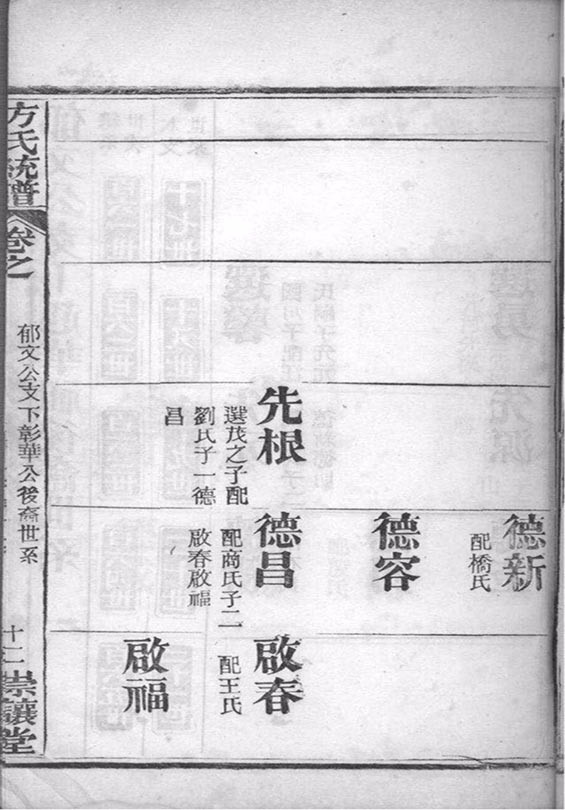 德新
配橋氏
德容
先根
選茂之子配
劉氏子一德
昌
德昌
配商氏子二
啟春啟福
啟春
配王氏
啟福
方氏統譜
卷之
郁文公支下彰華公後裔世系
十二
崇讓堂